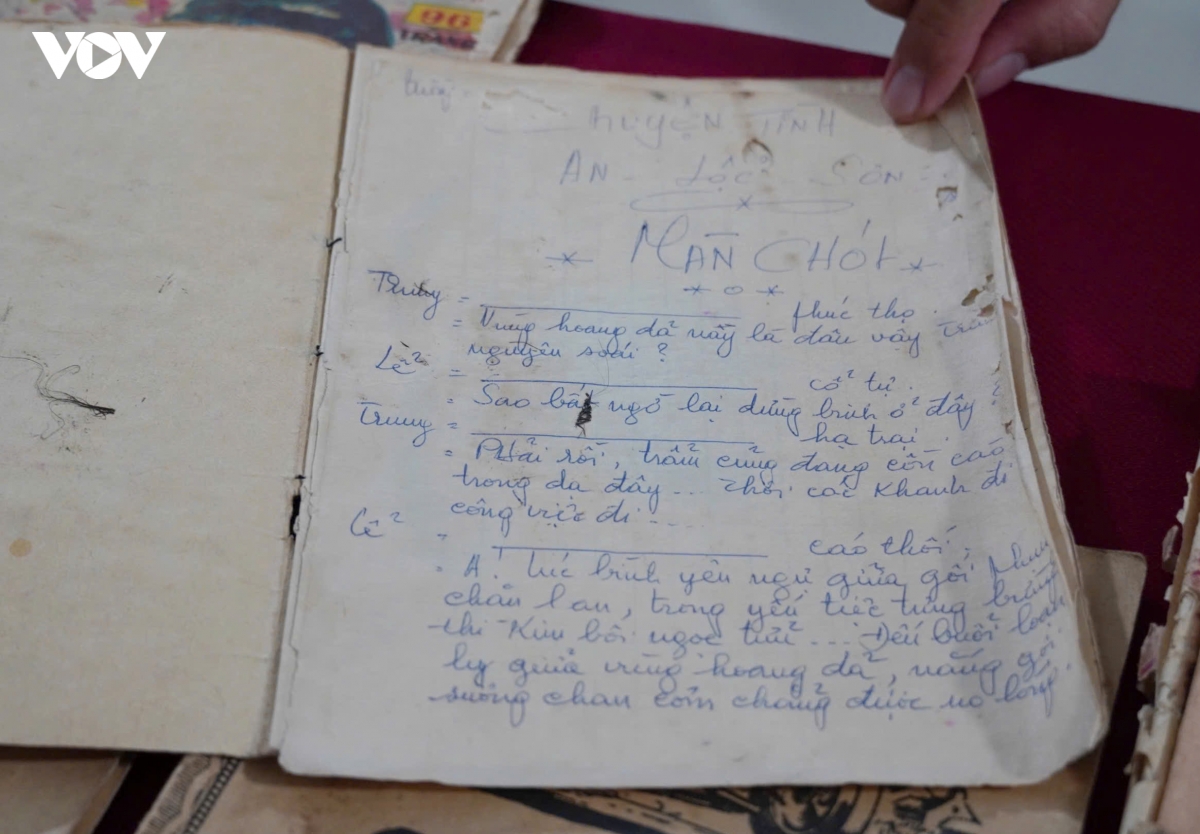 VOV
96
TRANG
CHUYỆN TÌNH
AN - LỘC - SƠN
MÀN CHÓT
Trung = phúc thọ.
= Vùng hoang dã nầy là đâu vậy
nguyên soái ?
Lê² = cổ tự.
= Sao bất ngờ lại dừng binh ở đây ?
Trung = hạ trại.
= Phải rồi, trẫm cũng đang còn cao
trong dạ đây ... Thôi các Khanh đi
công việc đi ....
Lê² = cao thối,
= A! lúc bình yên ngự giữa gối
chăn lan, trong yến tiệc tưng bừng
thì Kim bôi ngọc ... Đến buổi loạn
ly giữa vùng hoang dã, nắng gội
sương chan còn chẳng được no lòng.